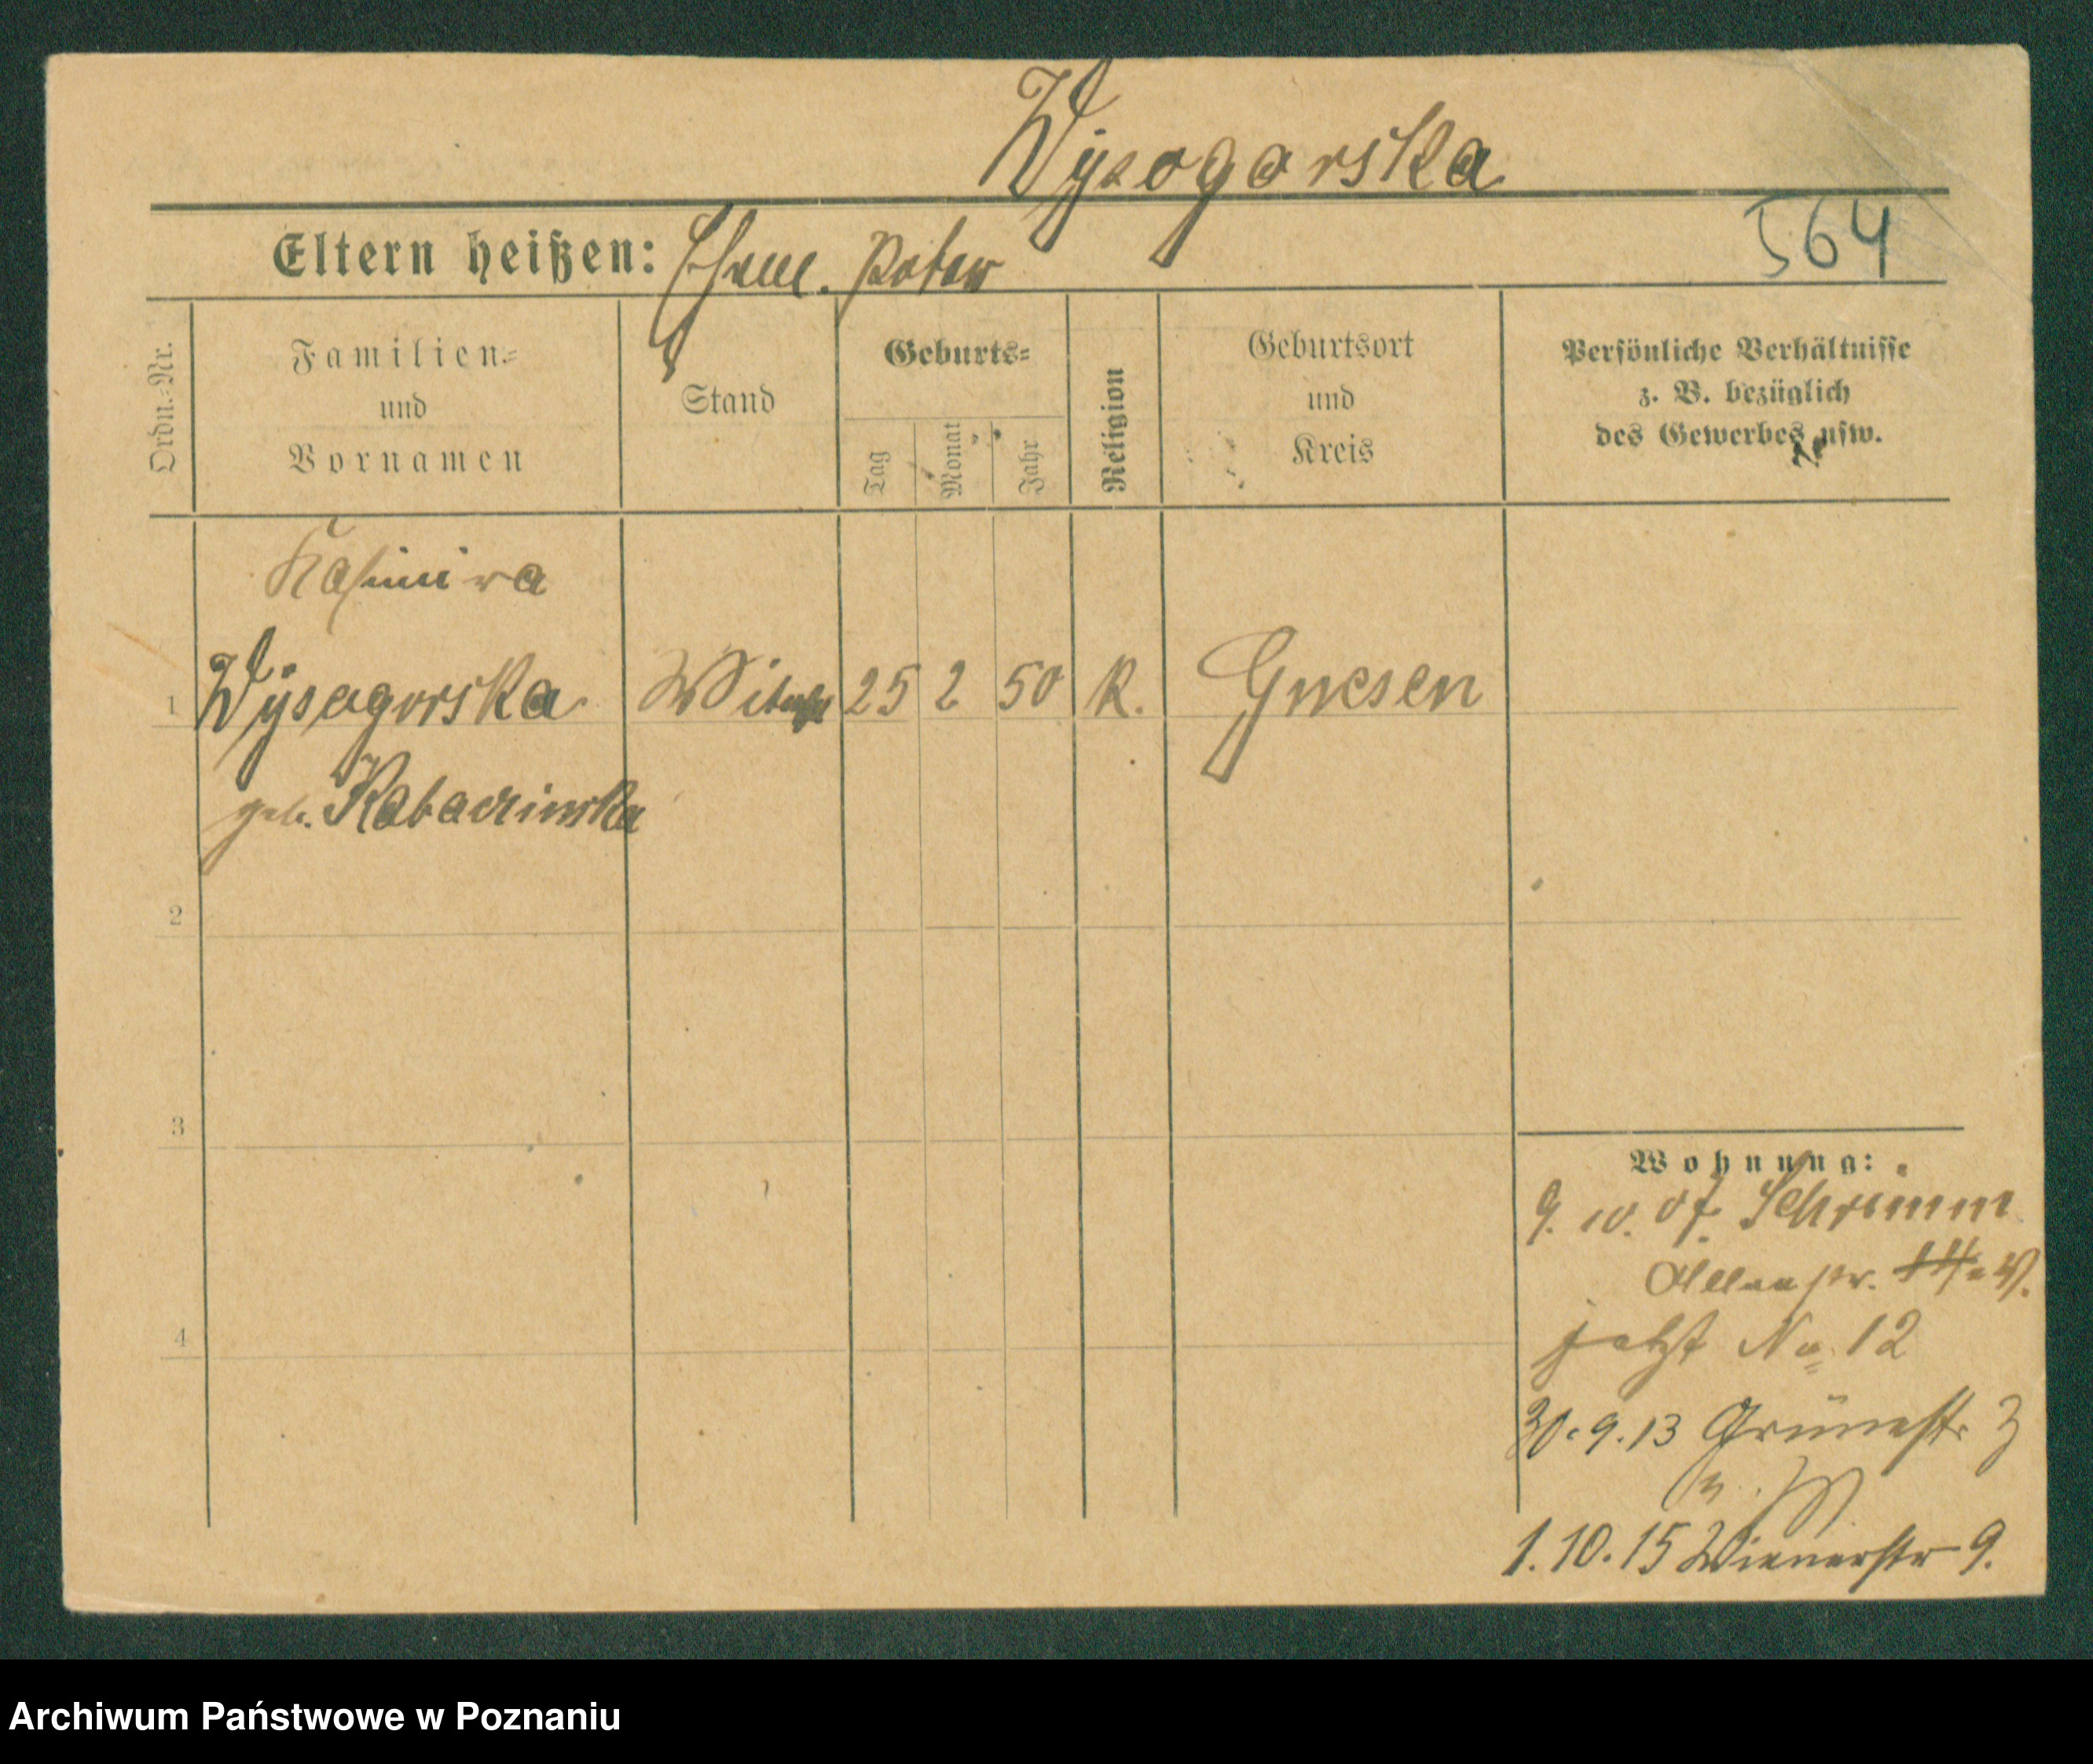 Wysogorska
Eltern heißen: Ehem. Peter
564
Ordn.-Nr.
Familien-
und
Vornamen
Stand
Geburts-
Tag
Monat
Jahr
Religion
Geburtsort
und
Kreis
Persönliche Verhältnisse
z. B. bezüglich
des Gewerbes usw.
Kasimira
1 Wysogorska Witwe 25 2 50 K. Gnesen
geb.
2
3
4
Wohnung:
9. 10. 07. Schrimm
jetzt No. 12
30.9.13 Grünestr. 3
1.10.15 Wienerstr 9.
Archiwum Państwowe w Poznaniu